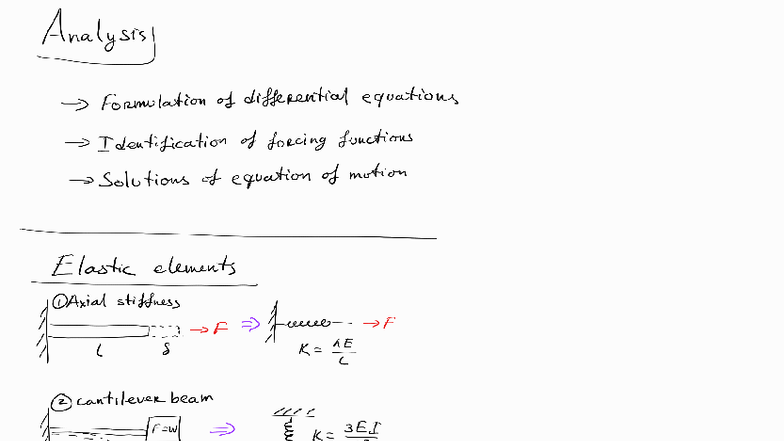 Analysis
→ Formulation of differential equations
→ Identification of forcing functions
→ Solutions of equation of motion
Elastic elements
① Axial stiffness
→ F ⇒ → F
L δ
K = AE/L
② cantilever beam
F=W ⇒
K = 3EI